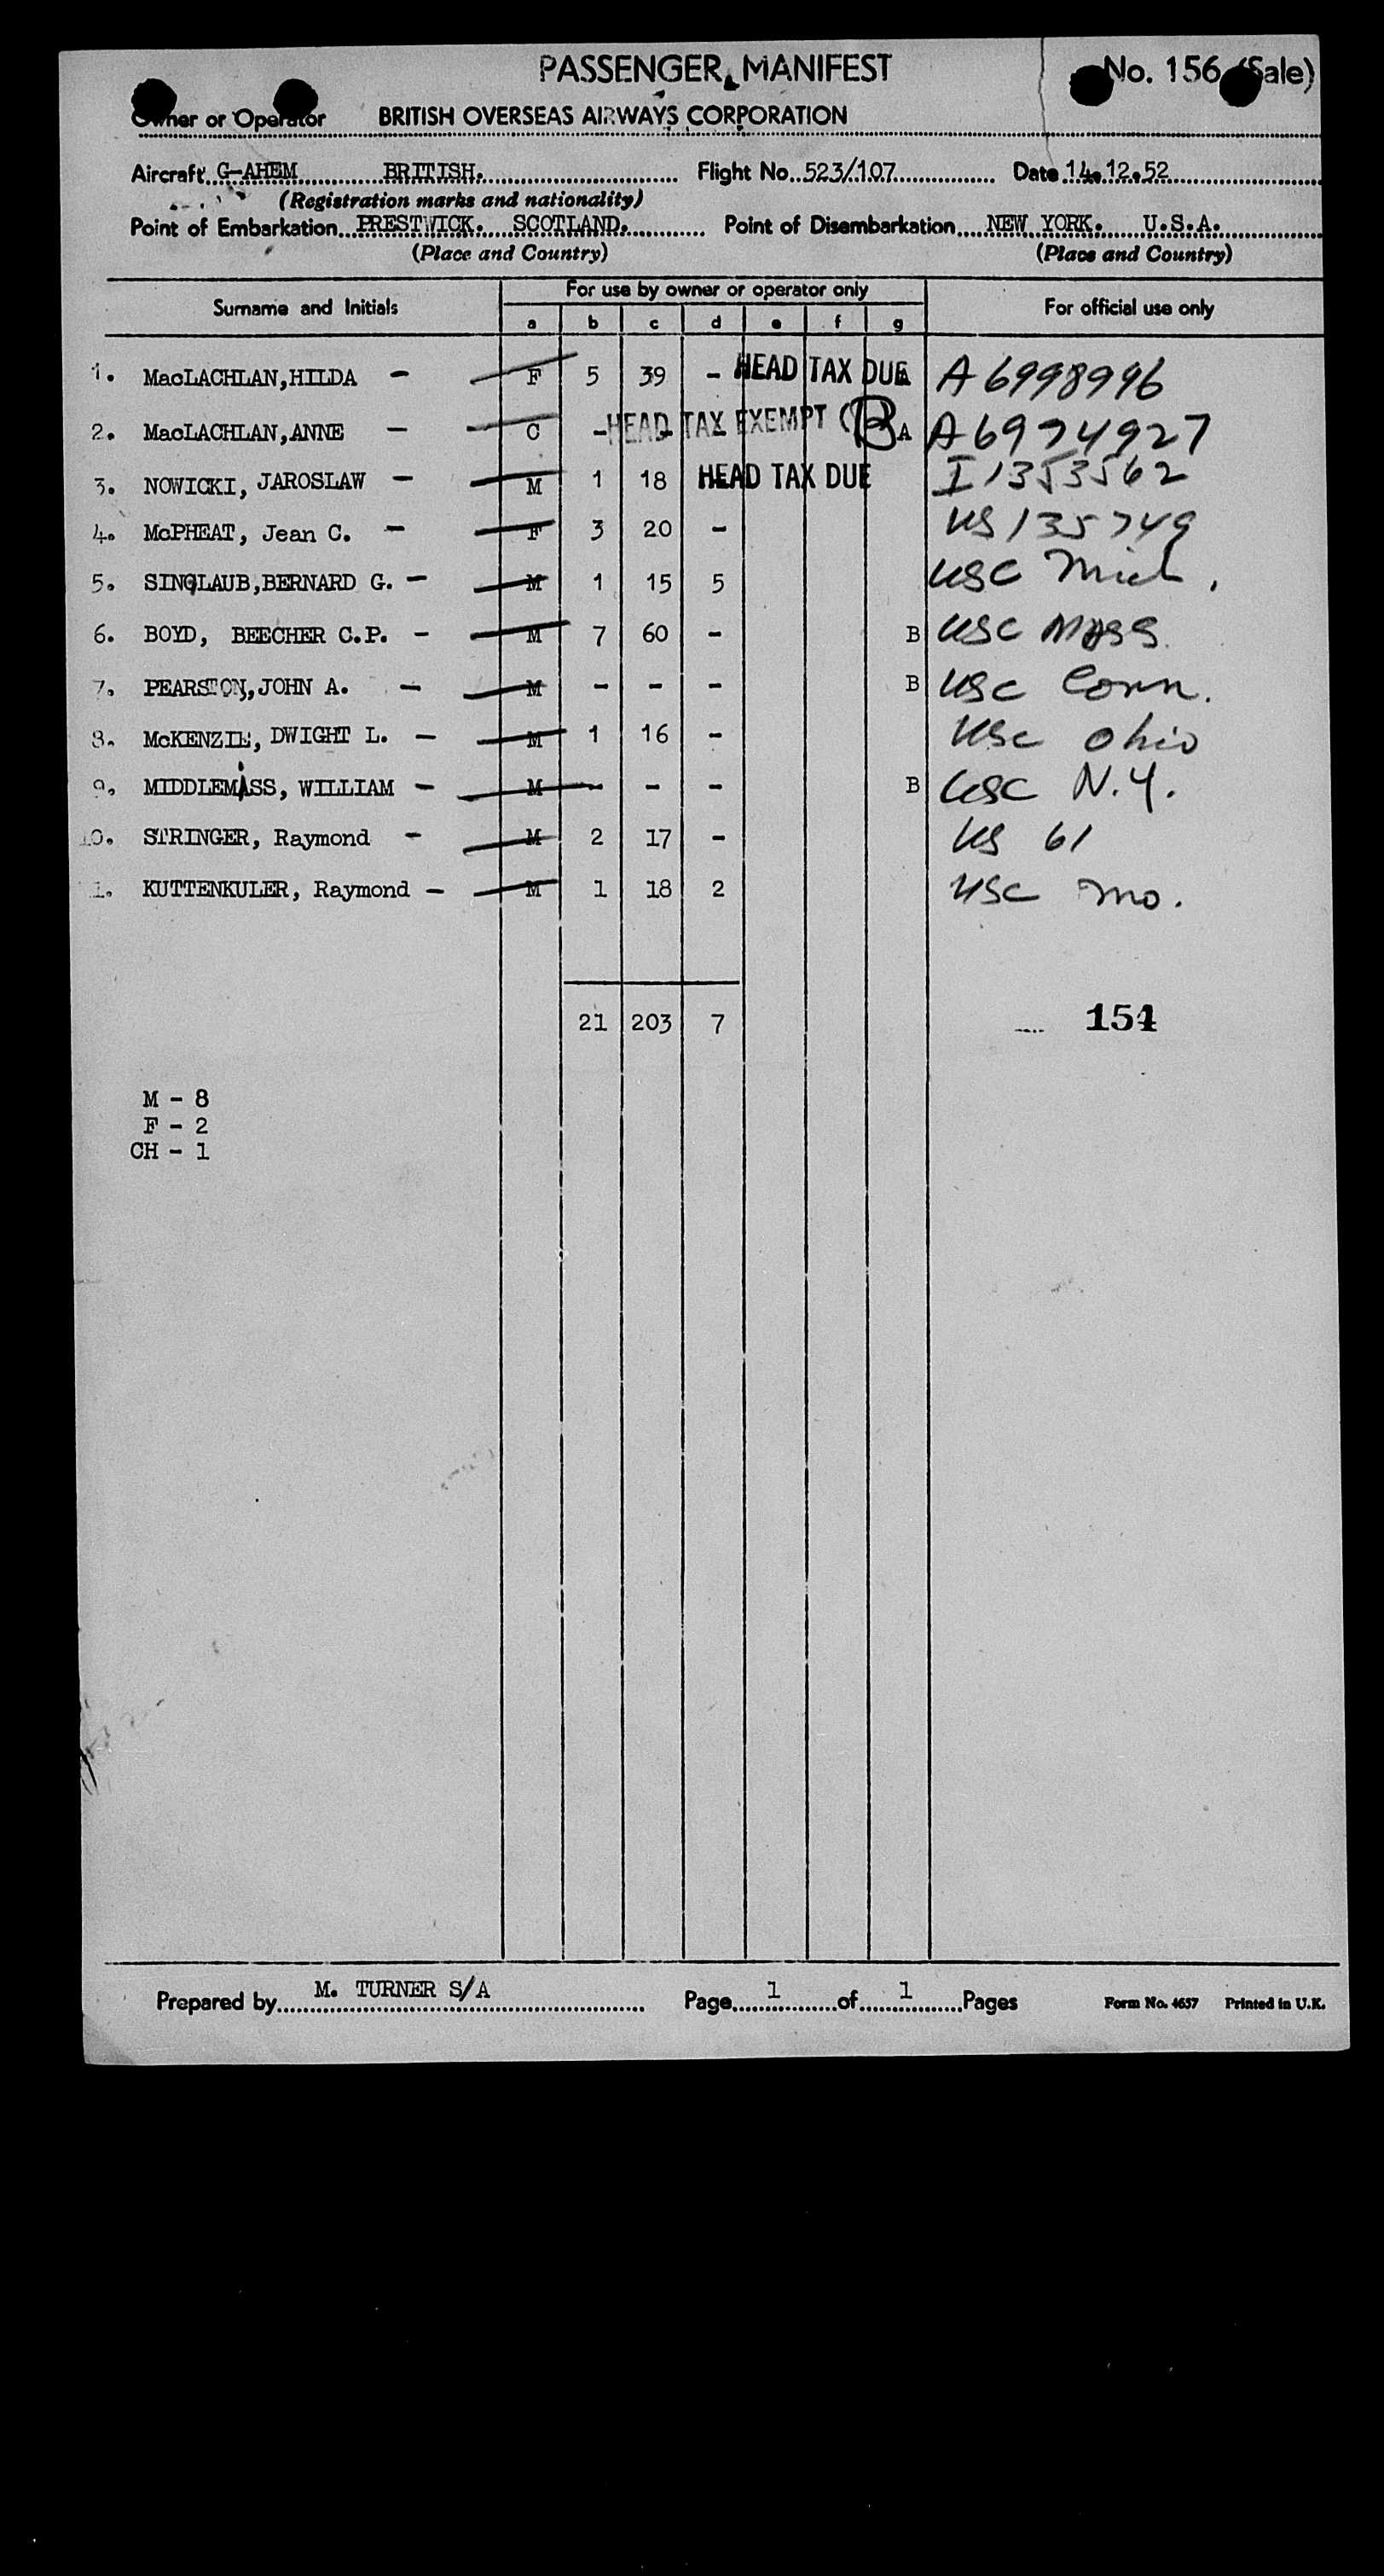 PASSENGER MANIFEST
No. 156 (Sale)
Owner or Operator BRITISH OVERSEAS AIRWAYS CORPORATION
Aircraft G-AHEM BRITISH. Flight No. 523/107 Date 14.12.52
(Registration marks and nationality)
Point of Embarkation PRESTWICK. SCOTLAND. Point of Disembarkation NEW YORK. U.S.A.
(Place and Country) (Place and Country)
Surname and Initials For use by owner or operator only For official use only
a b c d e f g
1. MacLACHLAN, HILDA - F 5 39 - HEAD TAX DUE A 6998996
2. MacLACHLAN, ANNE - C - - - HEAD TAX EXEMPT (B A A6974927
3. NOWICKI, JAROSLAW - M 1 18 HEAD TAX DUE I 1353562
4. McPHEAT, Jean C. - F 3 20 - US 135749
5. SINGLAUB, BERNARD G. - M 1 15 5 USC Mich.
6. BOYD, BEECHER C.P. - M 7 60 - B USC MASS.
7. PEARSTON, JOHN A. - M - - - B USC Conn.
8. McKENZIE, DWIGHT L. - M 1 16 - USC Ohio
9. MIDDLEMASS, WILLIAM - M - - - B USC N.Y.
10. STRINGER, Raymond - M 2 17 - US 61
1. KUTTENKULER, Raymond - M 1 18 2 USC Mo.
21 203 7 154
M - 8
F - 2
CH - 1
Prepared by M. TURNER S/A Page 1 of 1 Pages Form No. 4657 Printed in U.K.